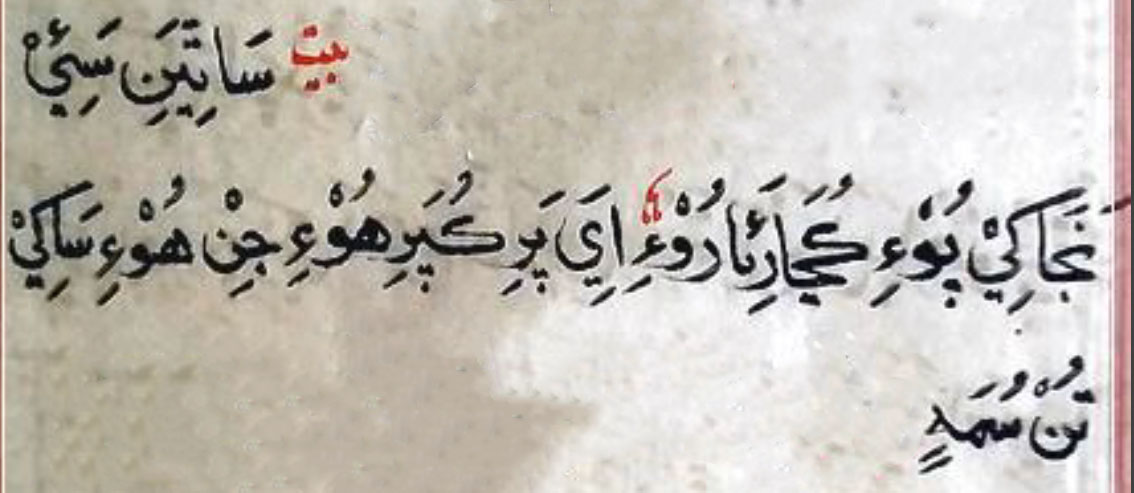 بيت سَاتِيَنِ سَئِيْ
نَجَا كِيْ پُوْءِ کُجَا رِئَا رُوْءِ اِيَ پَرِ ڪُپَرِ هُوْءِ جِنْ هُوْءِ سَاكِيْ
تُنْ سُمَهِ